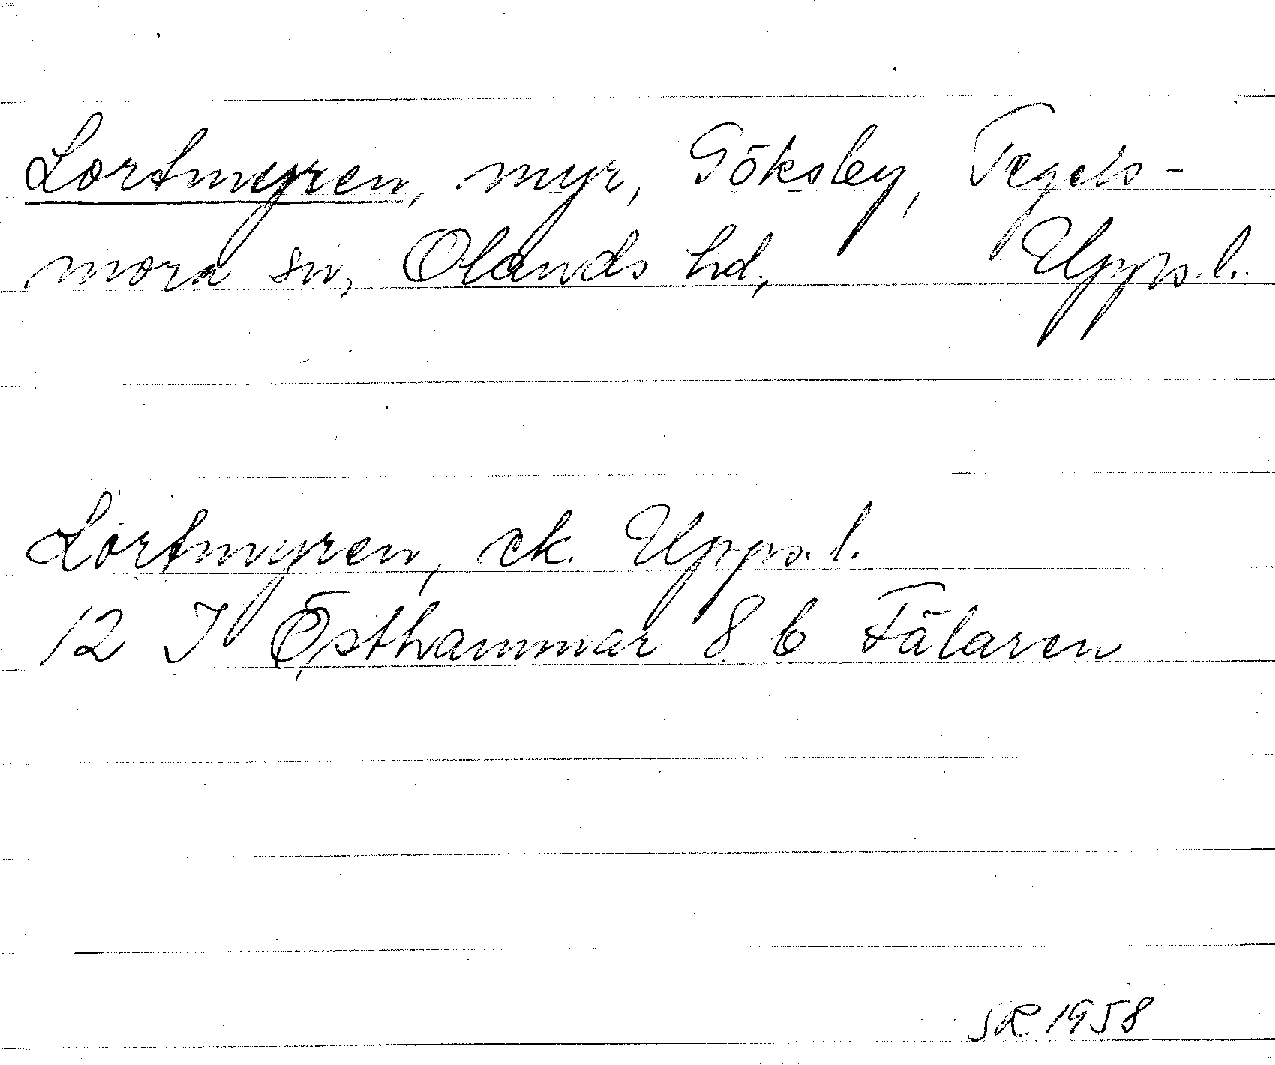 Lortmyren, myr, Göksby, Tegels-
mora sn, Olands hd, Upps.l.
Lortmyren, ek. Upps.l.
12 I Östhammar 8 b Fälaren
SR 1958